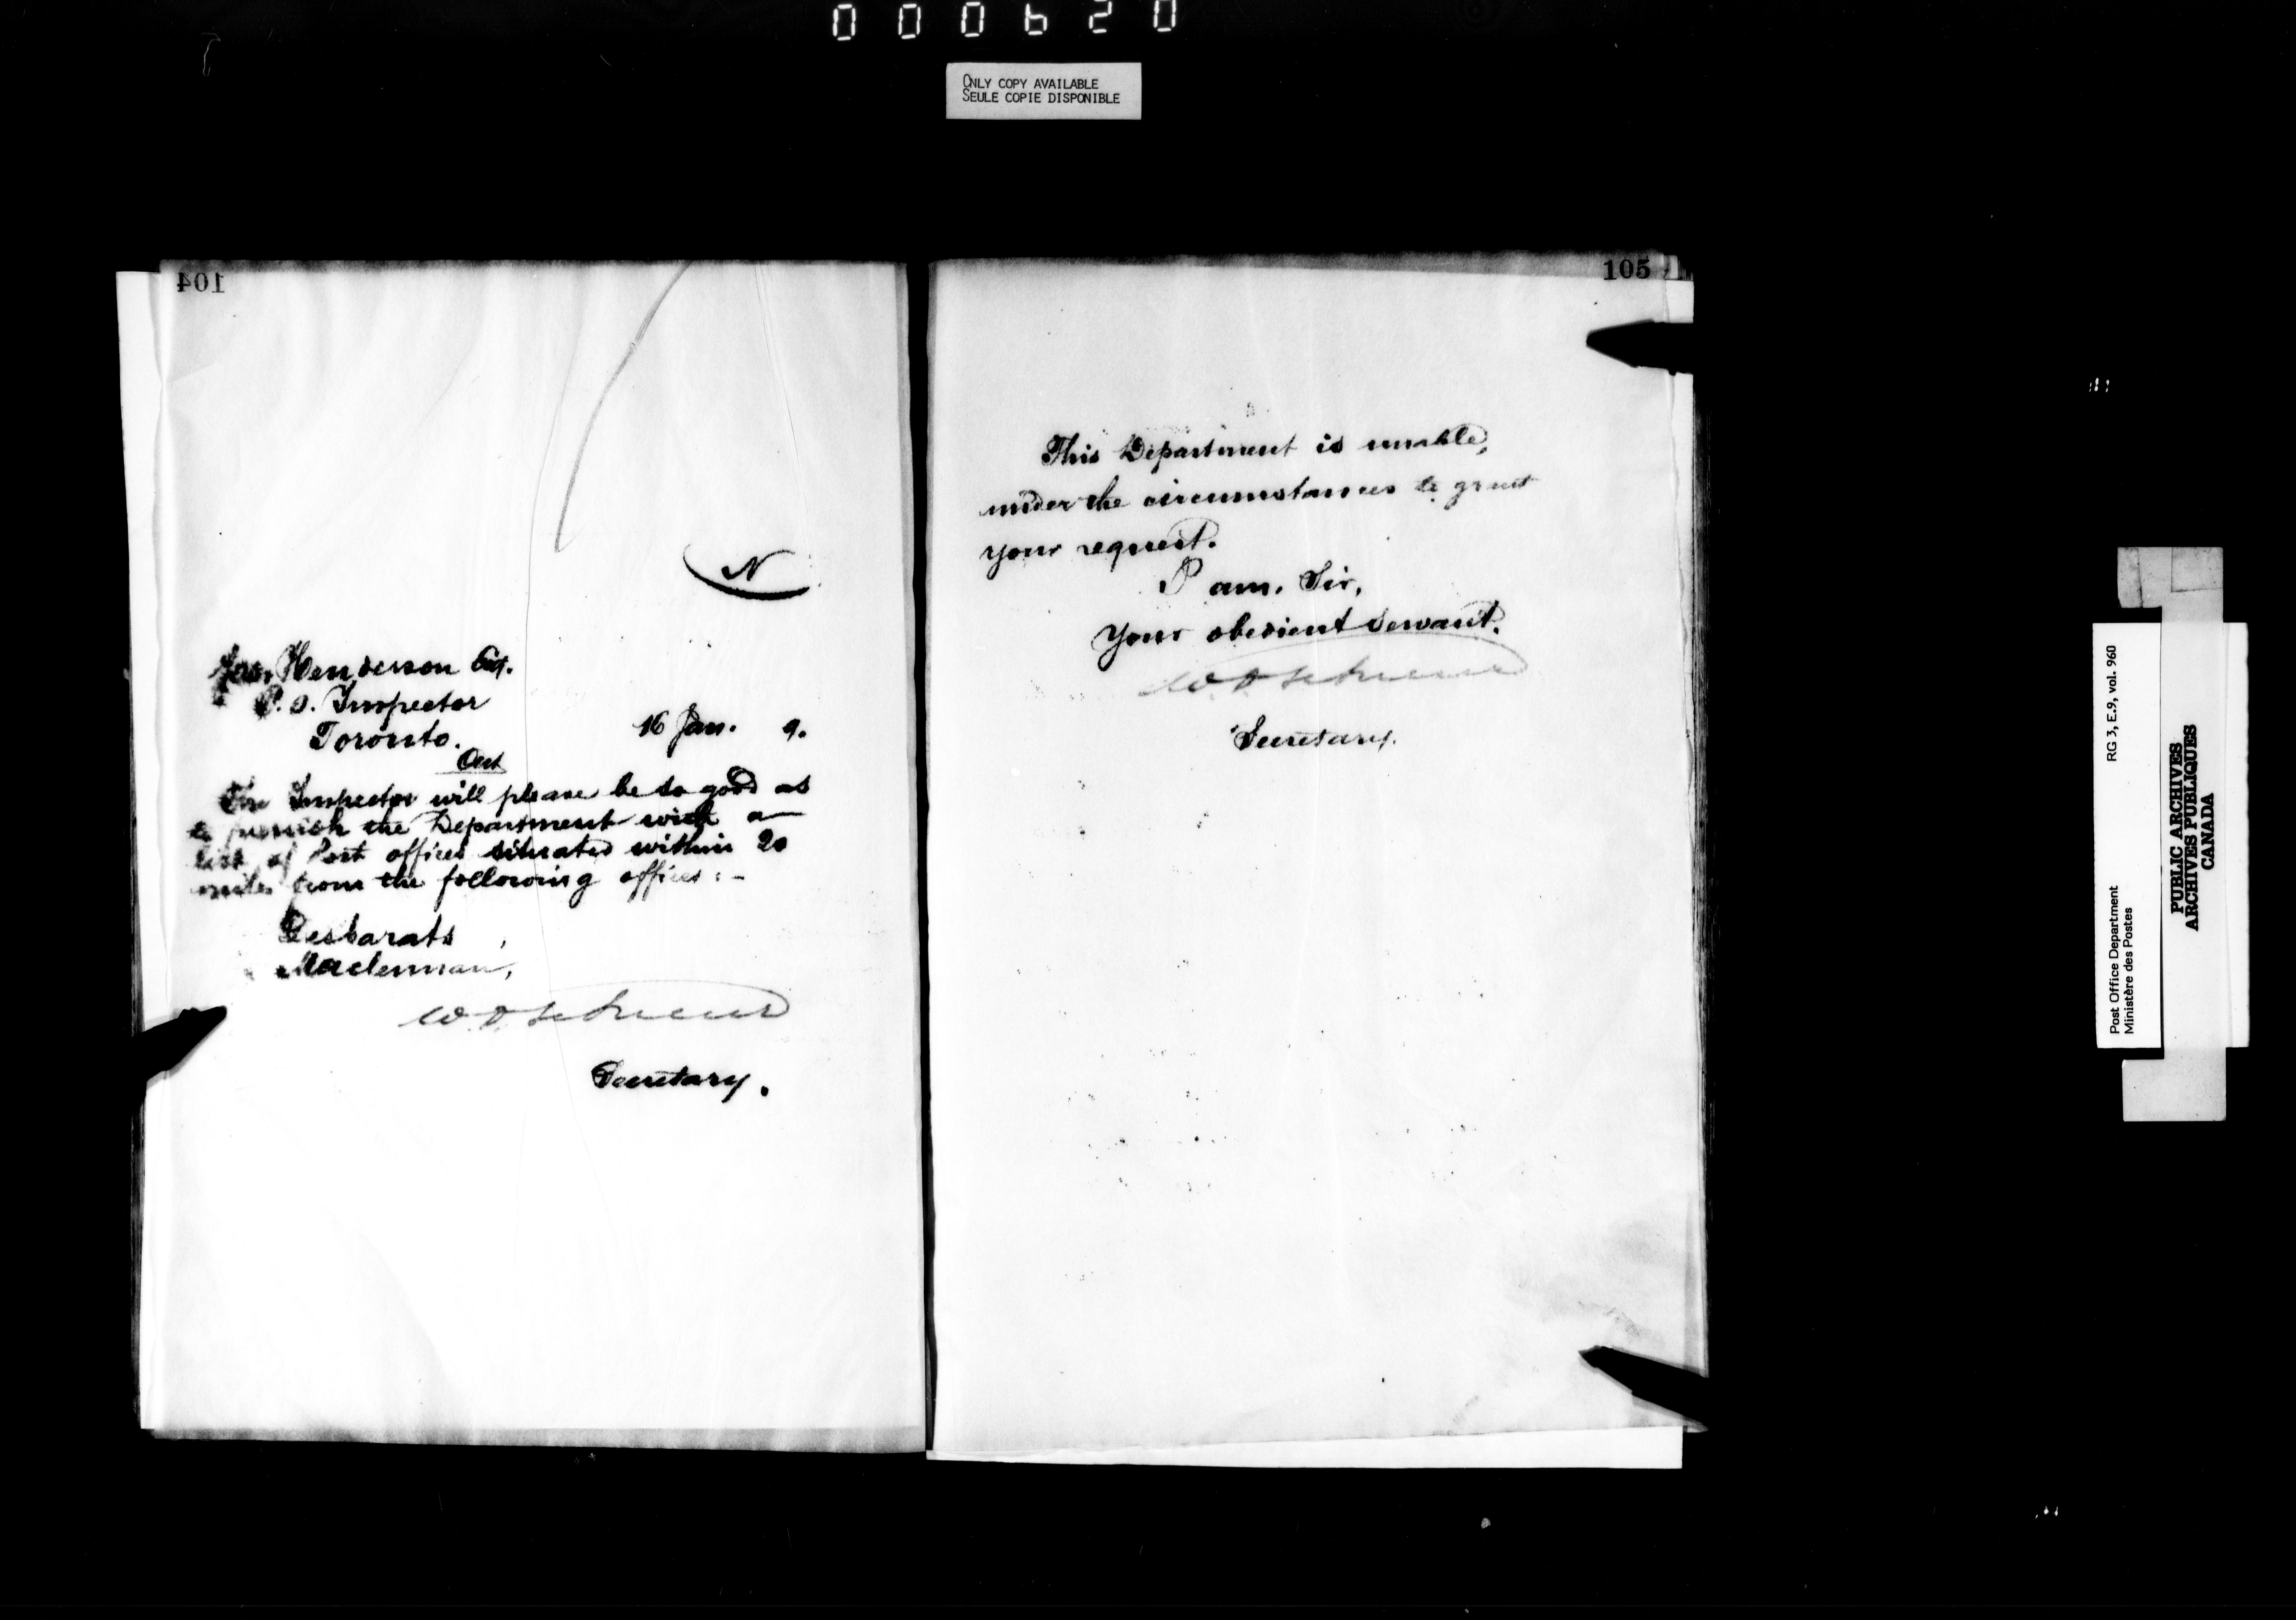 000620
ONLY COPY AVAILABLE
SEULE COPIE DISPONIBLE
104
N
Jas. Henderson Esq.
P.O. Inspector
Toronto.
Ont
16 Jan. 9.
The Inspector will please be so good as
to furnish the Department with a
list of Post offices situated within 20
miles from the following offices :-
Desbarats
Maclennan,
Secretary.
105
This Department is unable,
under the circumstances to grant
your request.
I am, Sir,
Your obedient servant.
Secretary.
Post Office Department
Ministère des Postes
RG 3, E.9, vol. 960
PUBLIC ARCHIVES
ARCHIVES PUBLIQUES
CANADA